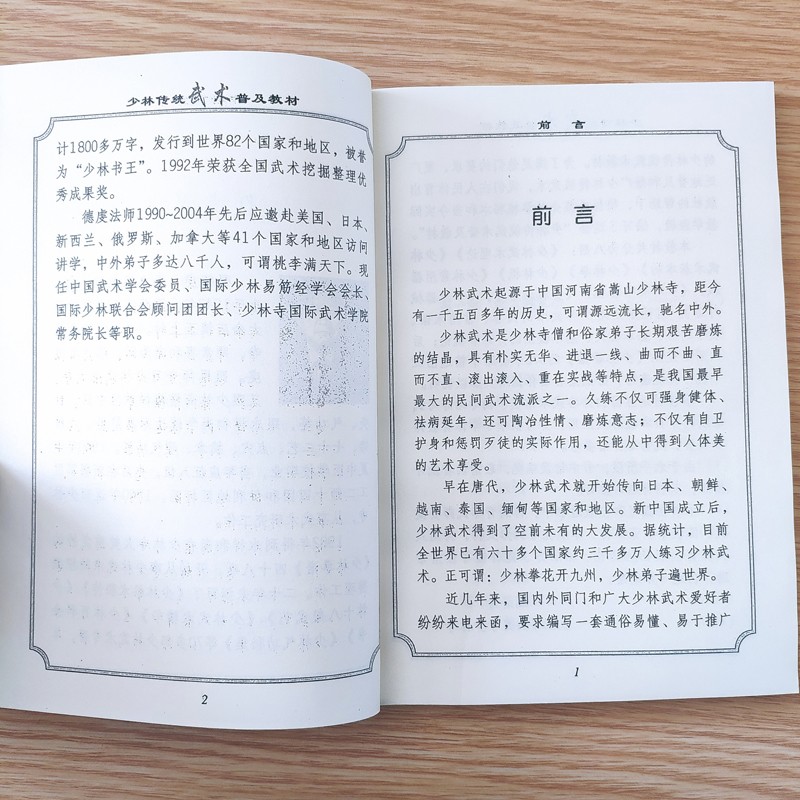 少林传统武术普及教材
计1800多万字，发行到世界82个国家和地区，被誉
为“少林书王”。1992年荣获全国武术挖掘整理优
秀成果奖。
德虔法师1990~2004年先后应邀赴美国、日本、
新西兰、俄罗斯、加拿大等41个国家和地区访问
讲学，中外弟子多达八千人，可谓桃李满天下。现
任中国武术学会委员、国际少林易筋经学会会长、
国际少林联合会顾问团团长、少林寺国际武术学院
常务院长等职。
2
前 言
前言
少林武术起源于中国河南省嵩山少林寺，距今
有一千五百多年的历史，可谓源远流长，驰名中外。
少林武术是少林寺僧和俗家弟子长期艰苦磨炼
的结晶，具有朴实无华、进退一线、曲而不曲、直
而不直、滚出滚入、重在实战等特点，是我国最早
最大的民间武术流派之一。久练不仅可强身健体、
祛病延年，还可陶冶性情、磨炼意志；不仅有自卫
护身和惩罚歹徒的实际作用，还能从中得到人体美
的艺术享受。
早在唐代，少林武术就开始传向日本、朝鲜、
越南、泰国、缅甸等国家和地区。新中国成立后，
少林武术得到了空前未有的大发展。据统计，目前
全世界已有六十多个国家约三千多万人练习少林武
术。正可谓：少林拳花开九州，少林弟子遍世界。
近几年来，国内外同门和广大少林武术爱好者
纷纷来电来函，要求编写一套通俗易懂、易于推广
1